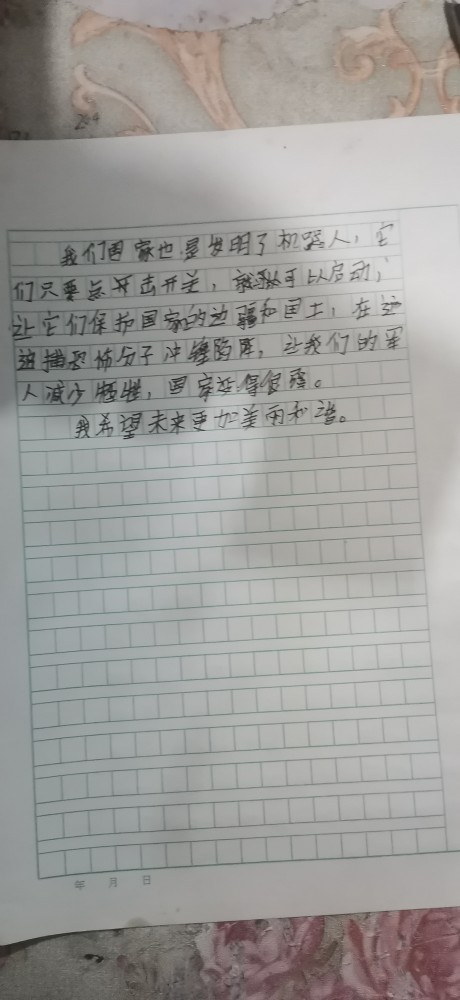 我们国家也是发明了机器人，它
们只要点开击开关，就可以启动，
让它们保护国家的边疆和国土，在边
恐怖分子冲锋陷阵，让我们的军
人减少牺牲，国家变得富强。
我希望未来更加美丽和谐。
年 月 日